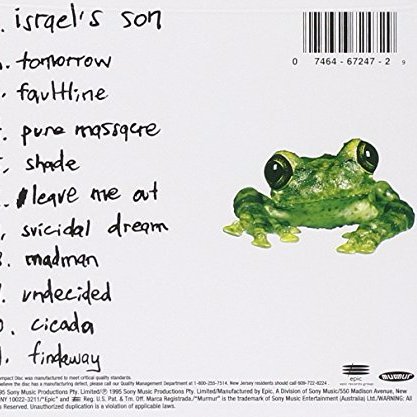 . israel's son
. tomorrow
. faultline
. pure massacre
, shade
. leave me out
, suicidal dream
. madman
. undecided
. cicada
. findaway
0 7464-67247-2 9
epic
murmur
ompact Disc was manufactured to meet critical quality standards.
believe the disc has a manufacturing defect, please call our Quality Management Department at 1-800-255-7514. New Jersey residents should call 609-722-8224.
5 Sony Music Productions Pty. Limited/Ⓟ 1995 Sony Music Productions Pty. Limited/Manufactured by Epic, A Division of Sony Music/550 Madison Avenue, New
NY 10022-3211/"Epic" and Reg. U.S. Pat. & Tm. Off. Marca Registrada./"Murmur" is the trademark of Sony Music Entertainment (Australia) Ltd./WARNING: All
Reserved. Unauthorized duplication is a violation of applicable laws.